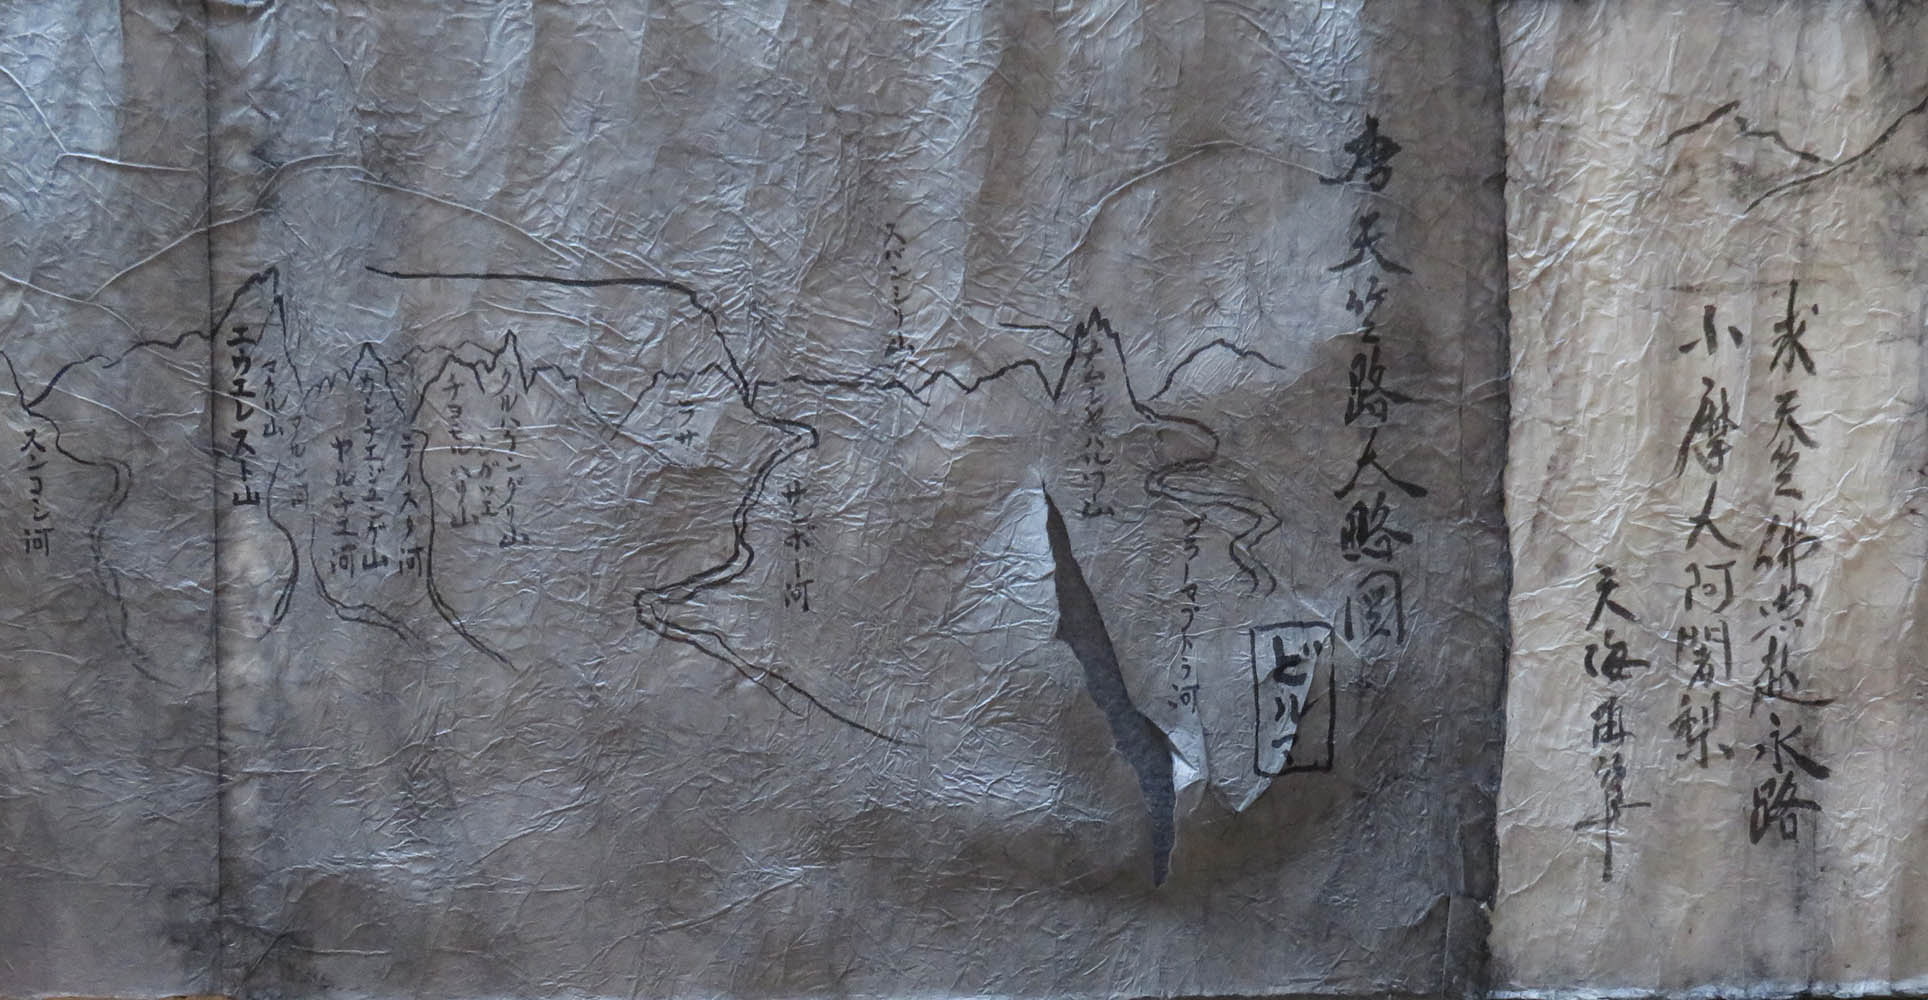 求天竺佛典赴永路
小摩大阿闍梨
天海
天竺路大略図
ビルマ
ブラーマプトラ河
ナムチャバルワ山
スバンシリ山
サンポー河
ラサ
クルハカングリ山
シガツェ
チョモルハリ山
ティスタ河
カンチェンジュンガ山
マカルー山
エヴェレスト山
スンコシ河